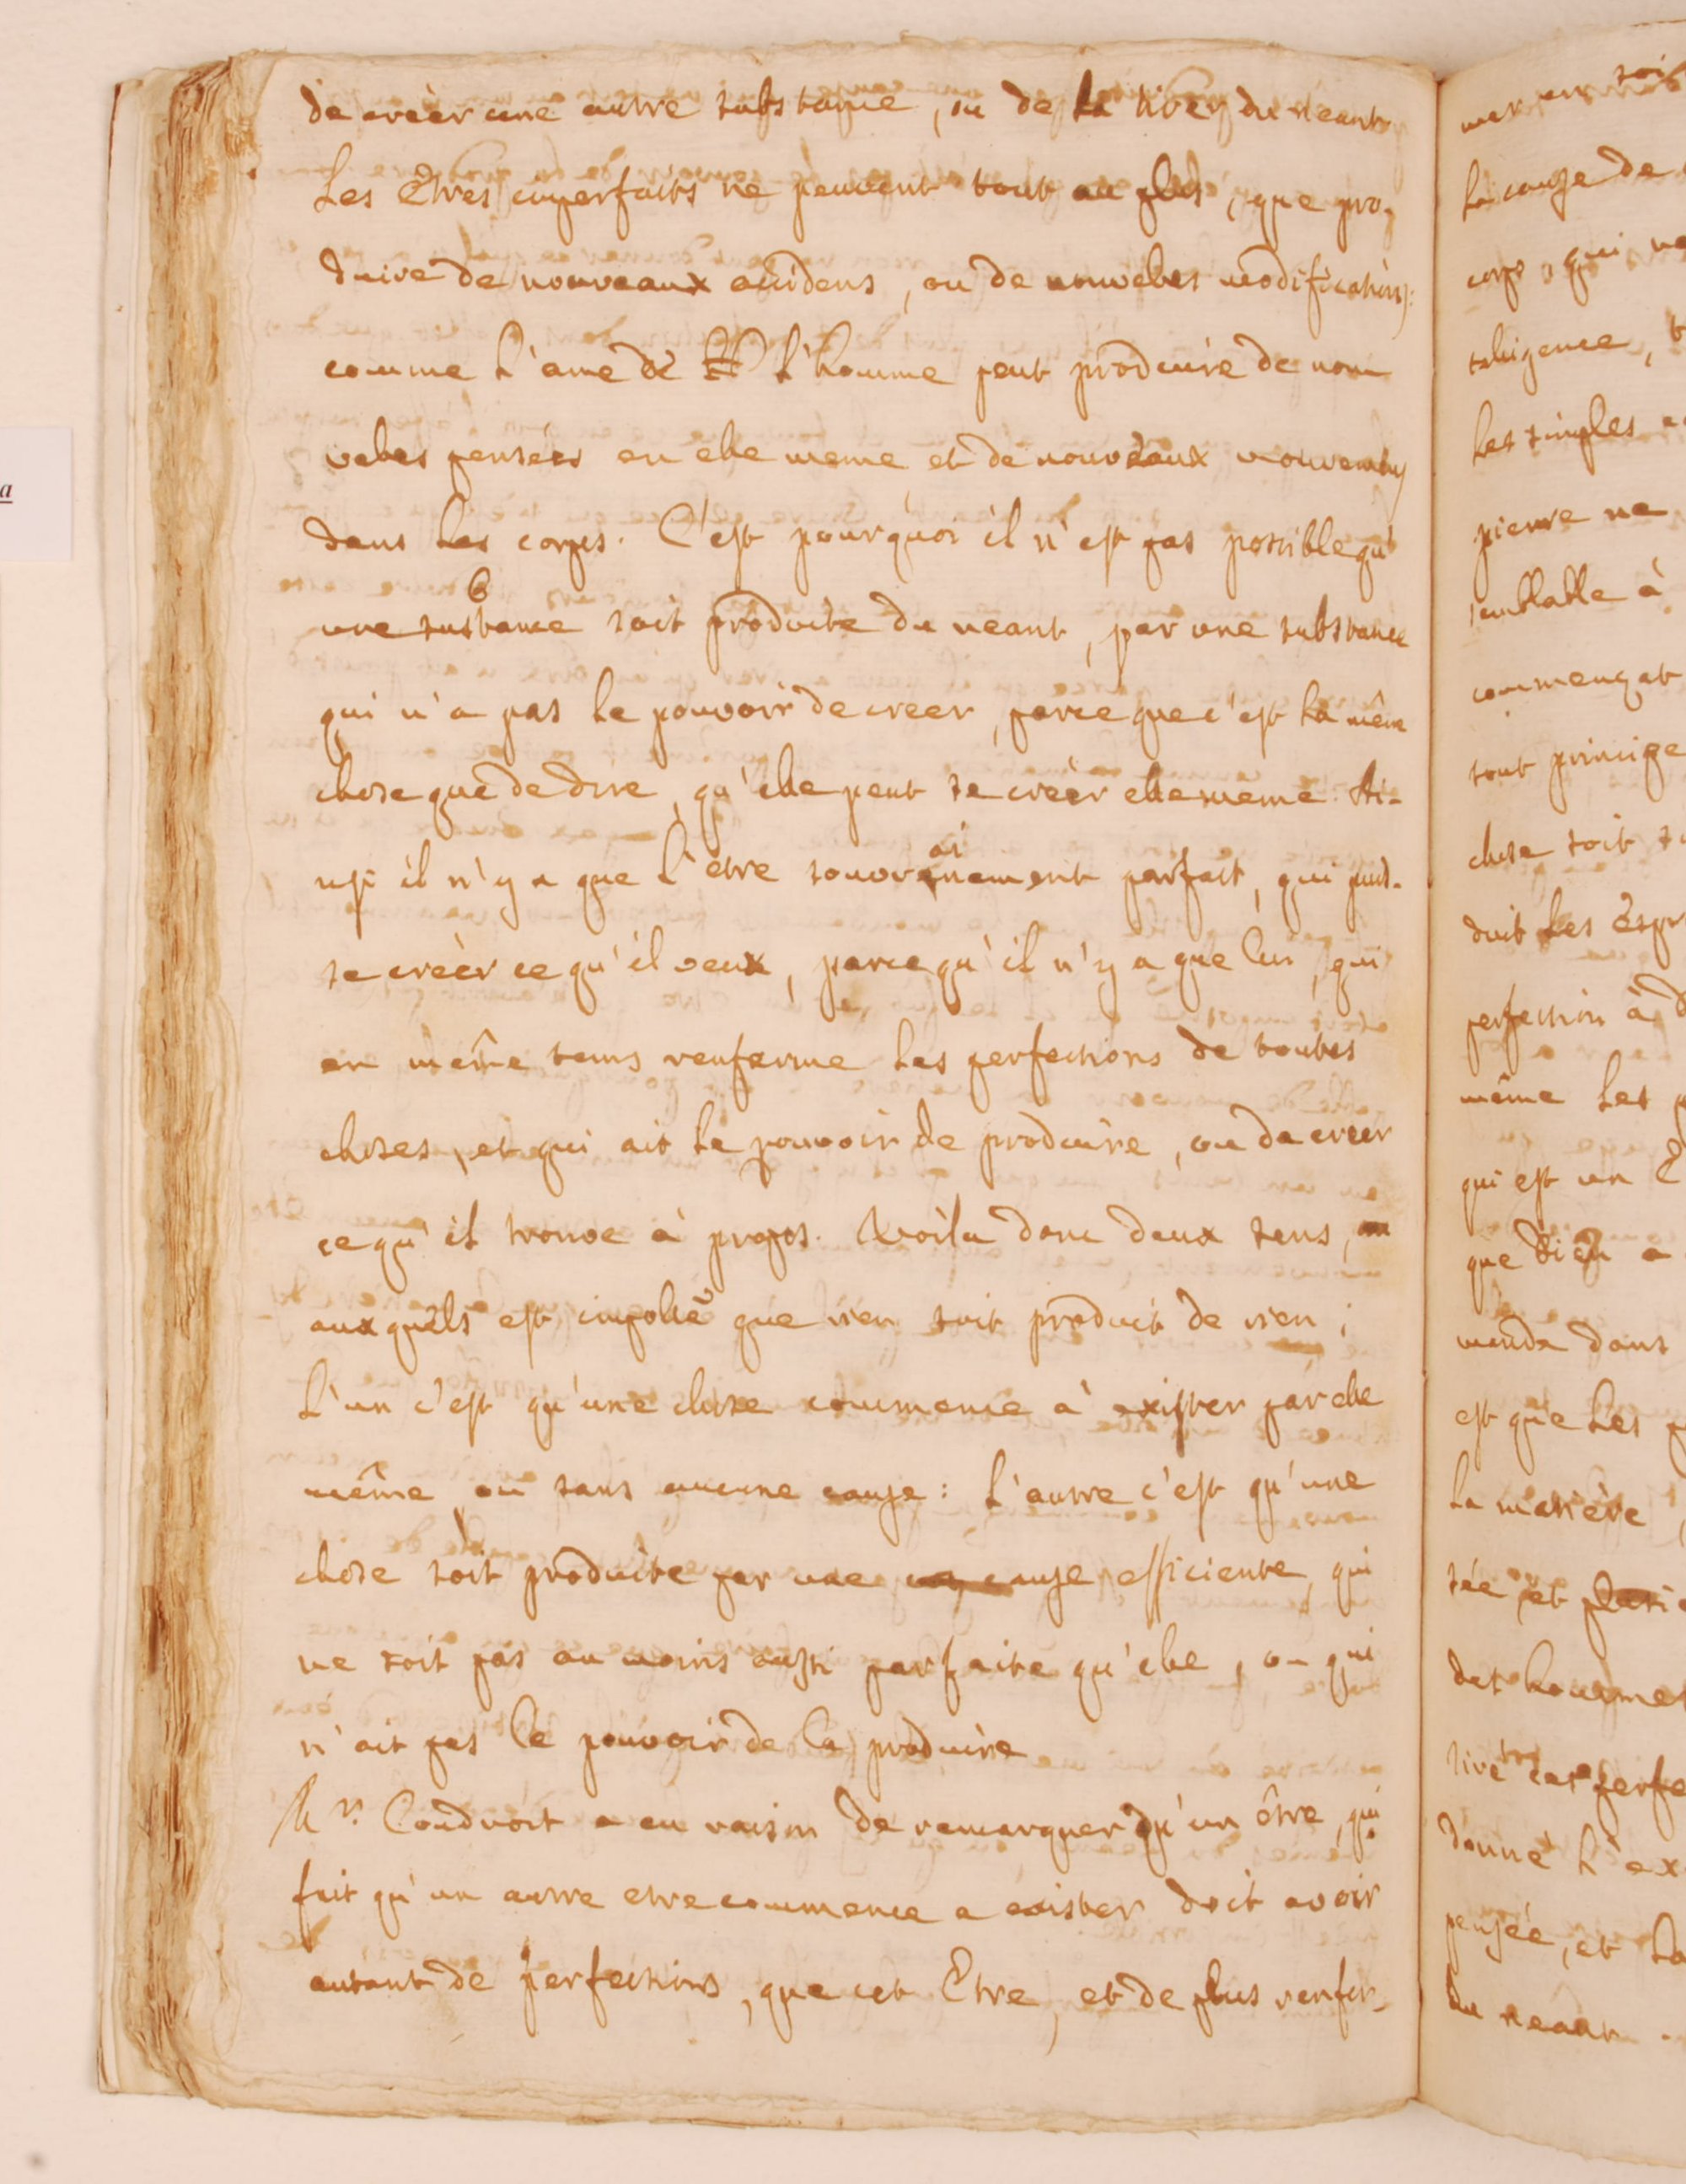 de creèr une autre substance, ou de la tirer du neant
Les Etres imperfaits ne peuvent tout au plus, que pro-
duire de nouveaux accidens, ou de nouvelles modifications:
comme l'ame de l'homme peut produire de nou
velles pensées en elle meme et de nouveaux mouvements
dans les corps. C'est pourquoi il n'est pas possible qu'
une substance soit produite du neant, par une substance
qui n'a pas le pouvoir de creer, parce que c'est la même
chose que de dire, qu'elle peut se creèr elle meme. Ai-
nsi il n'y a que l'être souvrainement parfait, qui puis-
se creèr ce qu'il veux, parce qu'il n'y a que lui, qui
en même tems renferme les perfections de toutes
choses, et qui ait le pouvoir de produire, ou de creer
ce qu'il trouve à propos. Voila donc deux sens,
auxquels est impossible que rien soit produit de rien;
L'un c'est qu'une chose commence à exister par elle
même ou sans aucune cause: L'autre c'est qu'une
chose soit produite par une cause efficiente, qui
ne soit pas au moins aussi parfaite qu'elle, ou qui
n'ait pas le pouvoir de la produire
Mr. Coudroit a eu raison de remarquer qu'un être, qui
fait qu'un autre etre commence a exister doit avoir
autant de perfections, que cet Etre, et de plus renfer-
la cause de
corps, qui
telligence,
les simples
pierre ne
semblable à
commençat
tout principe
chose soit
duit les espr
perfection à
même les
qui est un E
que Dieu a
monde dans
est que les
la matière
sée et
des hommes
tiré ces perfe
donné l'ex
pensée, et la
du neant.